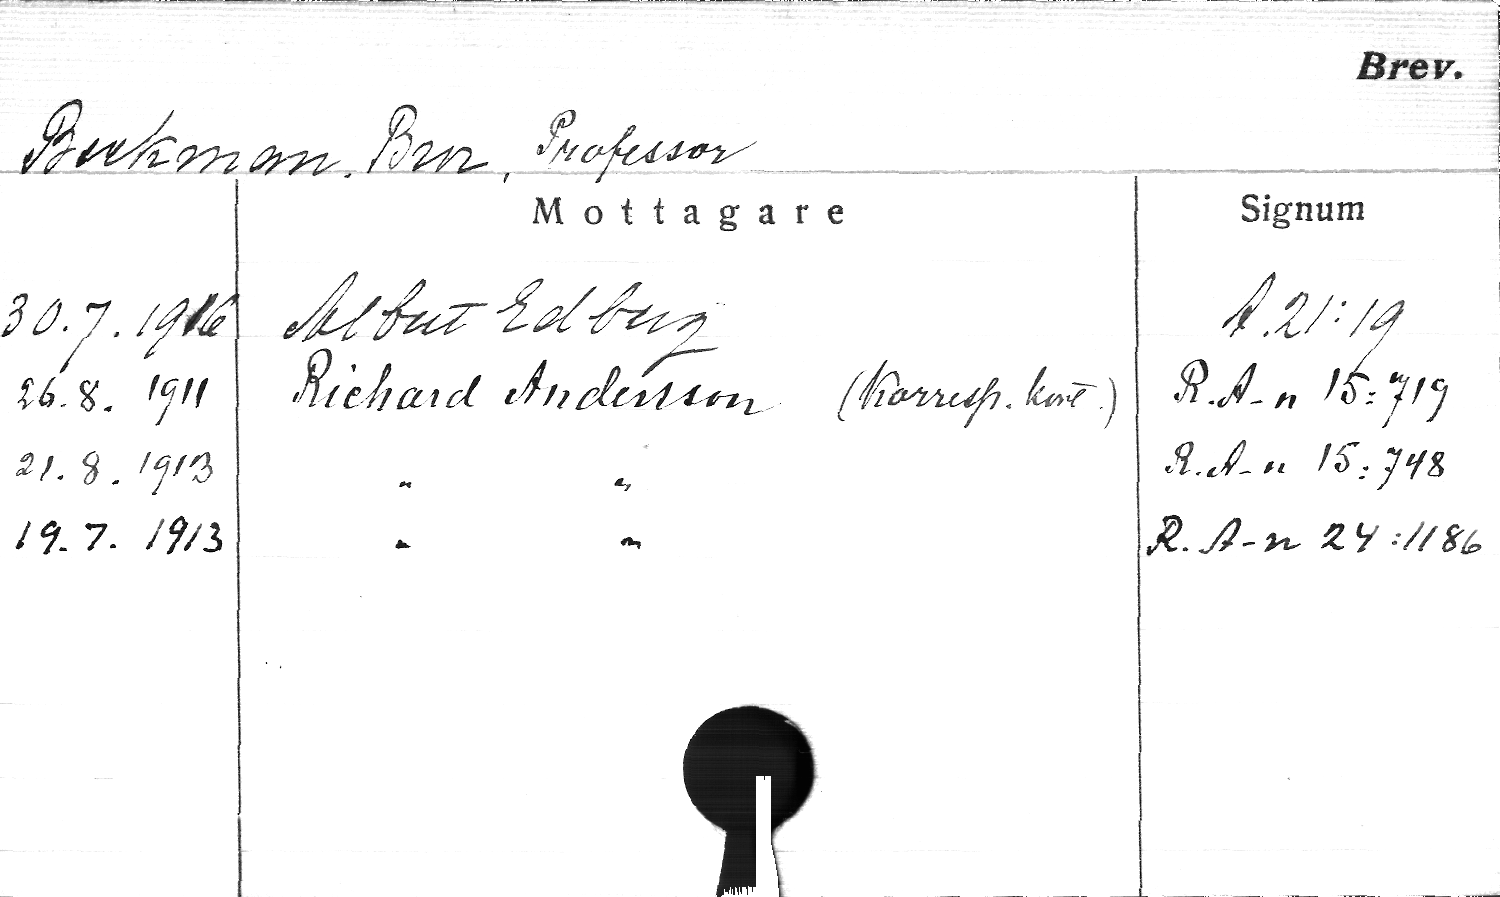 Brev.
Beckman, Bror, Professor
Mottagare Signum
30.7.1916 Albert Edberg A.21:19
26.8. 1911 Richard Andersson (Korresp. kort.) R.A-n 15:719
21.8.1913 " " R.A-n 15:748
19.7. 1913 " " R.A-n 24:1186